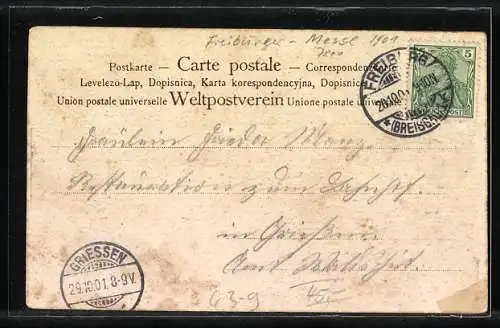 Freiburger - Messe 1901
Postkarte — Carte postale — Correspondenz
Levelezö-Lap, Dopisnica, Karta korespondencyjna, Dopisnic
Union postale universelle Weltpostverein Unione postale univers
5
FREIBURG
(BREISGAU)
Fräulein Frieda
Restauration zum Bahnhof
in Grießen
Amt Waldshut.
GRIESSEN
29.10.01. 8-9V.
63-9